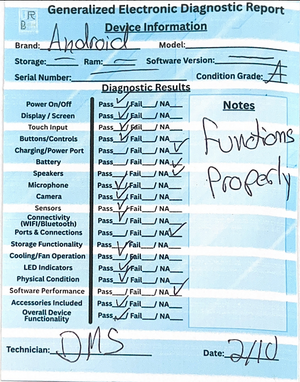 Generalized Electronic Diagnostic Report
Device Information
Brand: Android Model:
Storage: Ram: Software Version:
Serial Number: Condition Grade: A
Diagnostic Results
Power On/Off Pass ✓ / Fail / NA
Display / Screen Pass ✓ / Fail / NA
Touch Input Pass ✓ / Fail / NA
Buttons/Controls Pass ✓ / Fail / NA
Charging/Power Port Pass / Fail / NA ✓
Battery Pass / Fail / NA ✓
Speakers Pass / Fail / NA ✓
Microphone Pass ✓ / Fail / NA
Camera Pass ✓ / Fail / NA
Sensors Pass ✓ / Fail / NA
Connectivity
(WIFI/Bluetooth) Pass ✓ / Fail / NA
Ports & Connections Pass / Fail / NA ✓
Storage Functionality Pass ✓ / Fail / NA
Cooling/Fan Operation Pass ✓ / Fail / NA
LED Indicators Pass ✓ / Fail / NA
Physical Condition Pass ✓ / Fail / NA
Software Performance Pass / Fail / NA ✓
Accessories Included Pass ✓ / Fail / NA
Overall Device
Functionality Pass ✓ / Fail / NA
Notes
Functions
Properly
Technician: DMS Date: 2/10